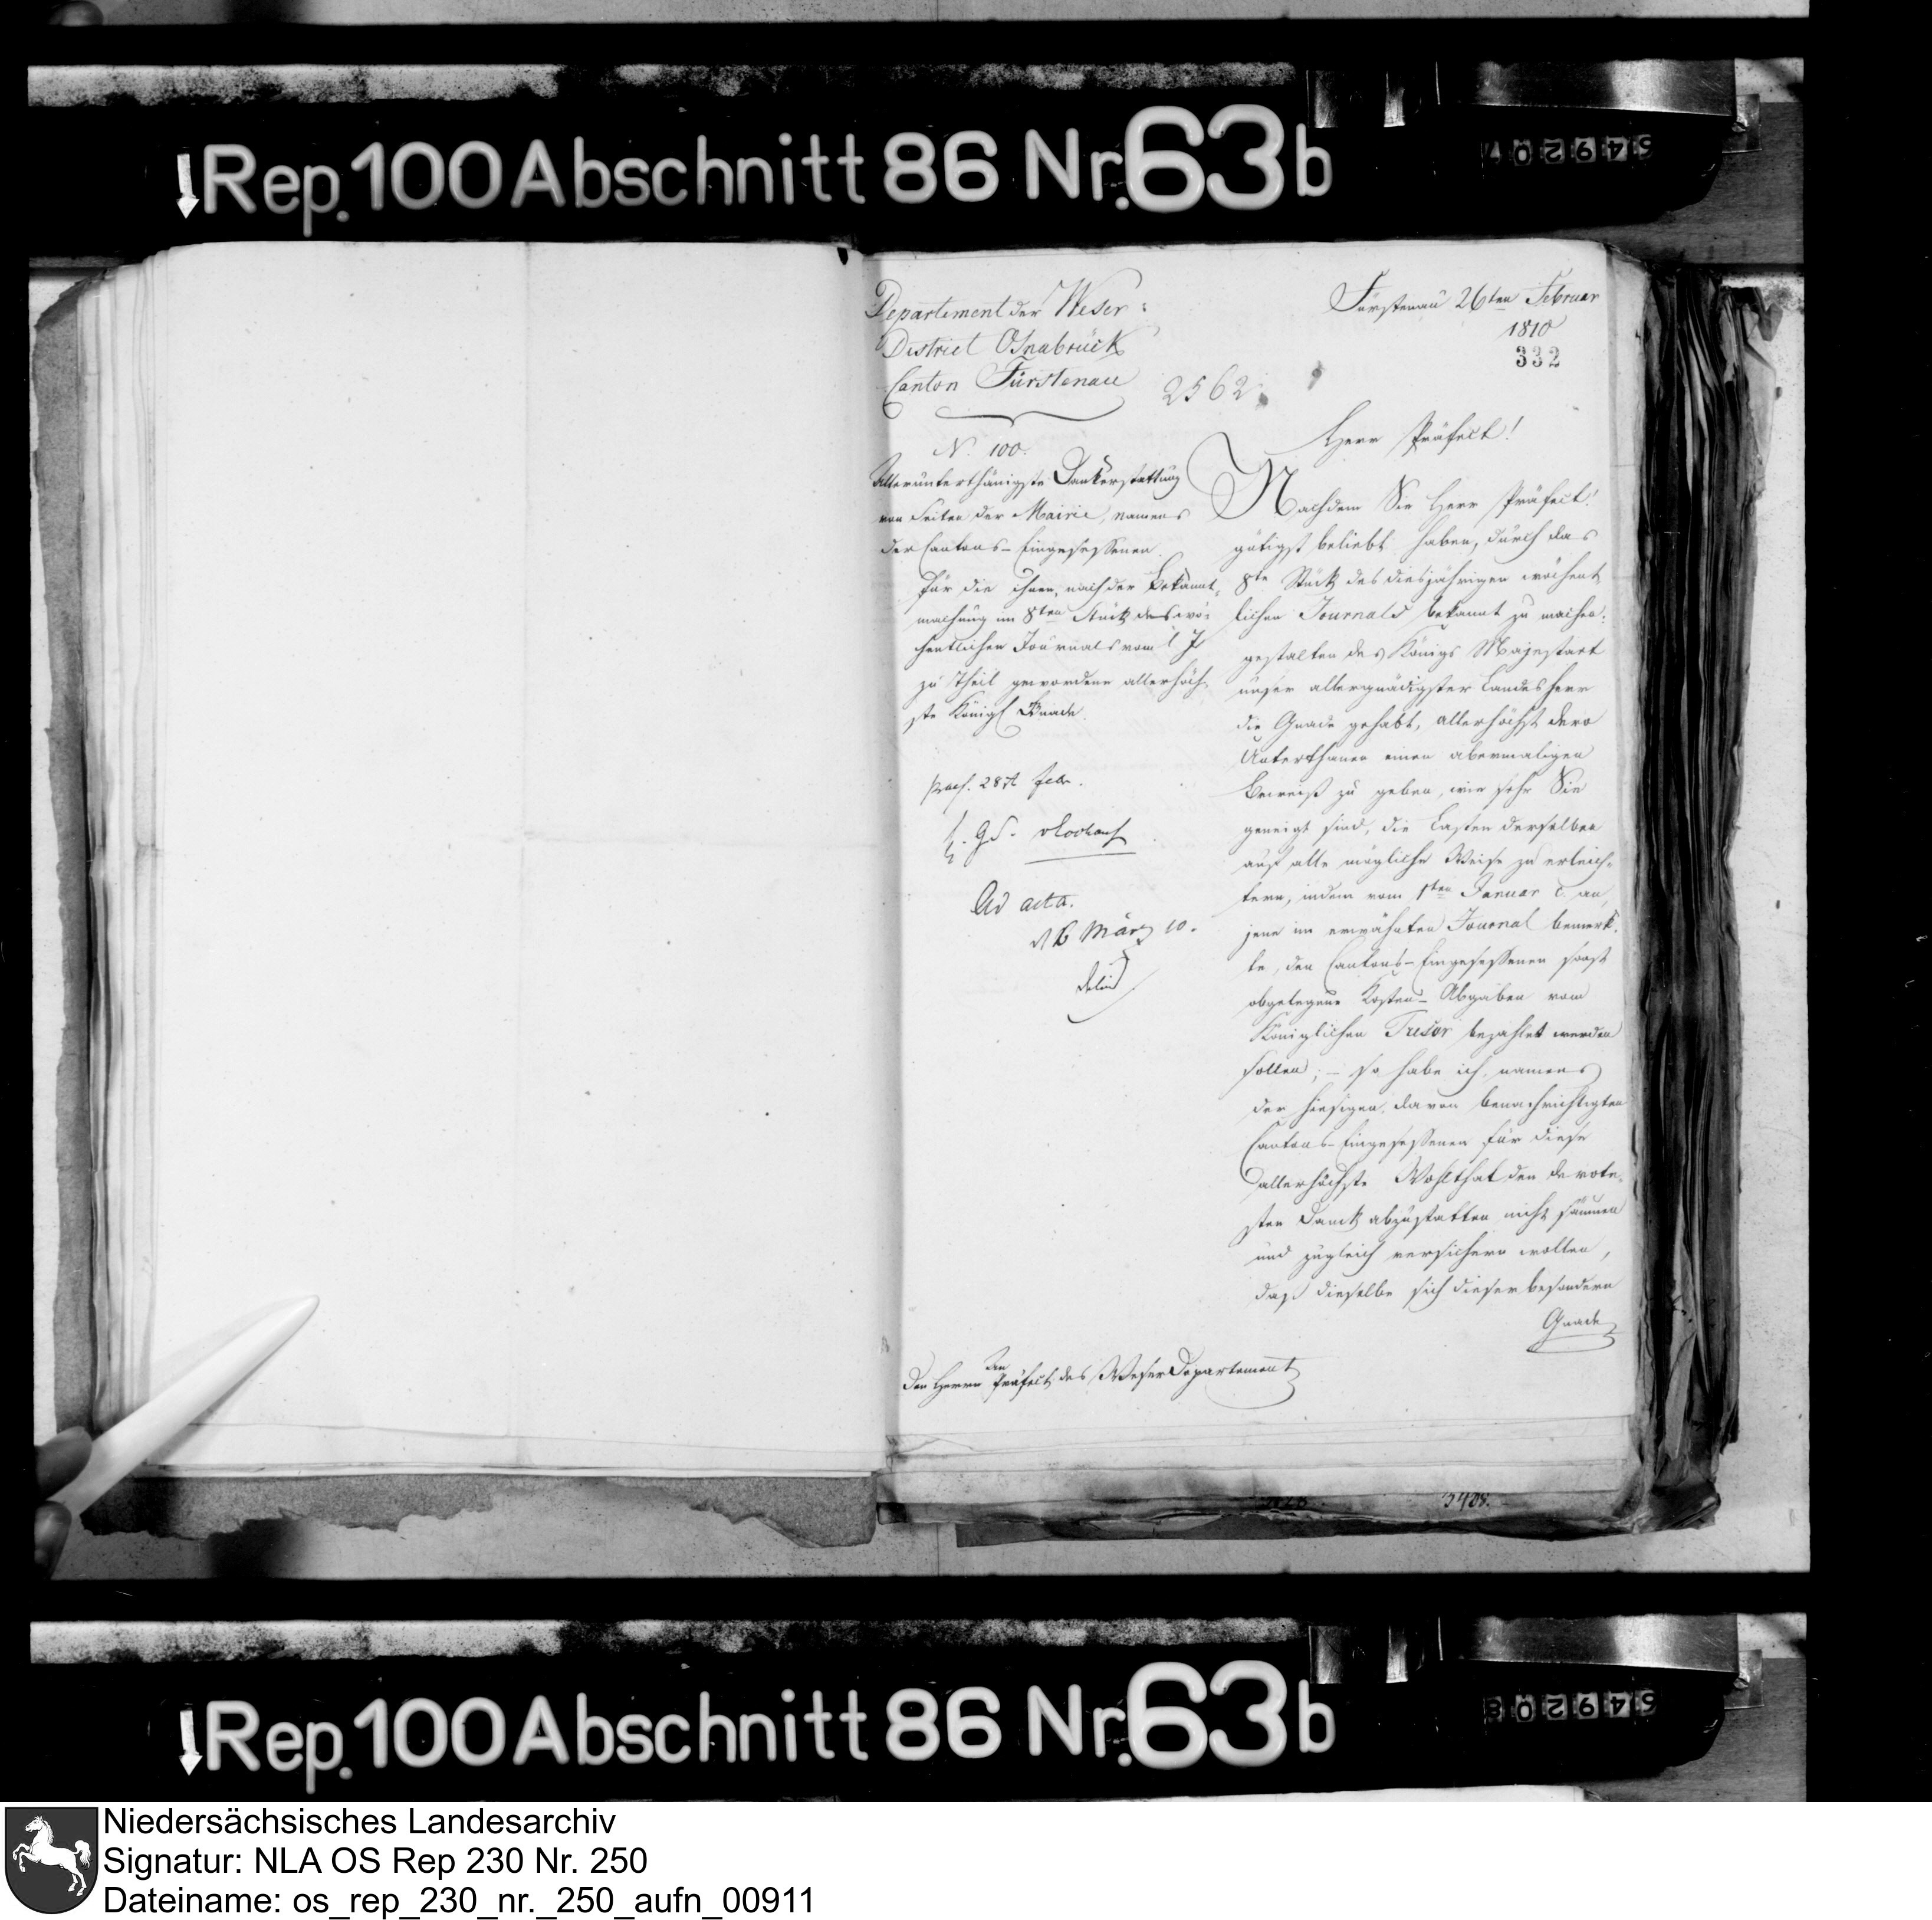 Rep. 100 Abschnitt 86 Nr. 63 b
549207
Departement der Weser:
District Osnabrück
Canton Fürstenau
Fürstenau 26ten Februar
1810
332
2562.
N. 100.
Allerunterthänigste Dankerstattung
von Seiten der Mairie, namens
der Cantons-Eingesessenen
für die ihnen, nach der Bekannt-
machung im 8ten Stück des wö-
chentlichen Journals vom l J
zu Theil gewordene allerhöch-
ste Königl Gnade.
praes. 28t febr.
H. GS.
Ad acta.
d 6 März 10.
Herr Präfect!
Nachdem Sie Herr Präfect!
gütigst beliebt haben, durch das
8te Stück des diesjährigen wöchent-
lichen Journals bekannt zu machen:
gestalten des Königs Majestaet
unser allergnädigster Landesherr
die Gnade gehabt, allerhöchst dero
Unterthanen einen abermaligen
Beweiß zu geben, wie sehr Sie
geneigt sind, die Lasten derselben
auf alle mögliche Weise zu erleich-
tern, indem vom 1ten Januar c. an,
jene im erwähnten Journal bemerk-
te, den Cantons-Eingesessenen sonst
obgelegene Kosten-Abgaben vom
Königlichen Tresor bezahlet werden
sollen; – so habe ich, namens
der hiesigen, davon benachrichtigten
Cantons-Eingesessenen für diese
allerhöchste Wohlthat den devote-
sten Dank abzustatten nicht säumen
und zugleich versichern wollen,
daß dieselbe sich dieser besondern
Gnade
Den Herrn Präfect des Weser Departement
5408.
Rep. 100 Abschnitt 86 Nr. 63 b
549208
Niedersächsisches Landesarchiv
Signatur: NLA OS Rep 230 Nr. 250
Dateiname: os_rep_230_nr._250_aufn_00911